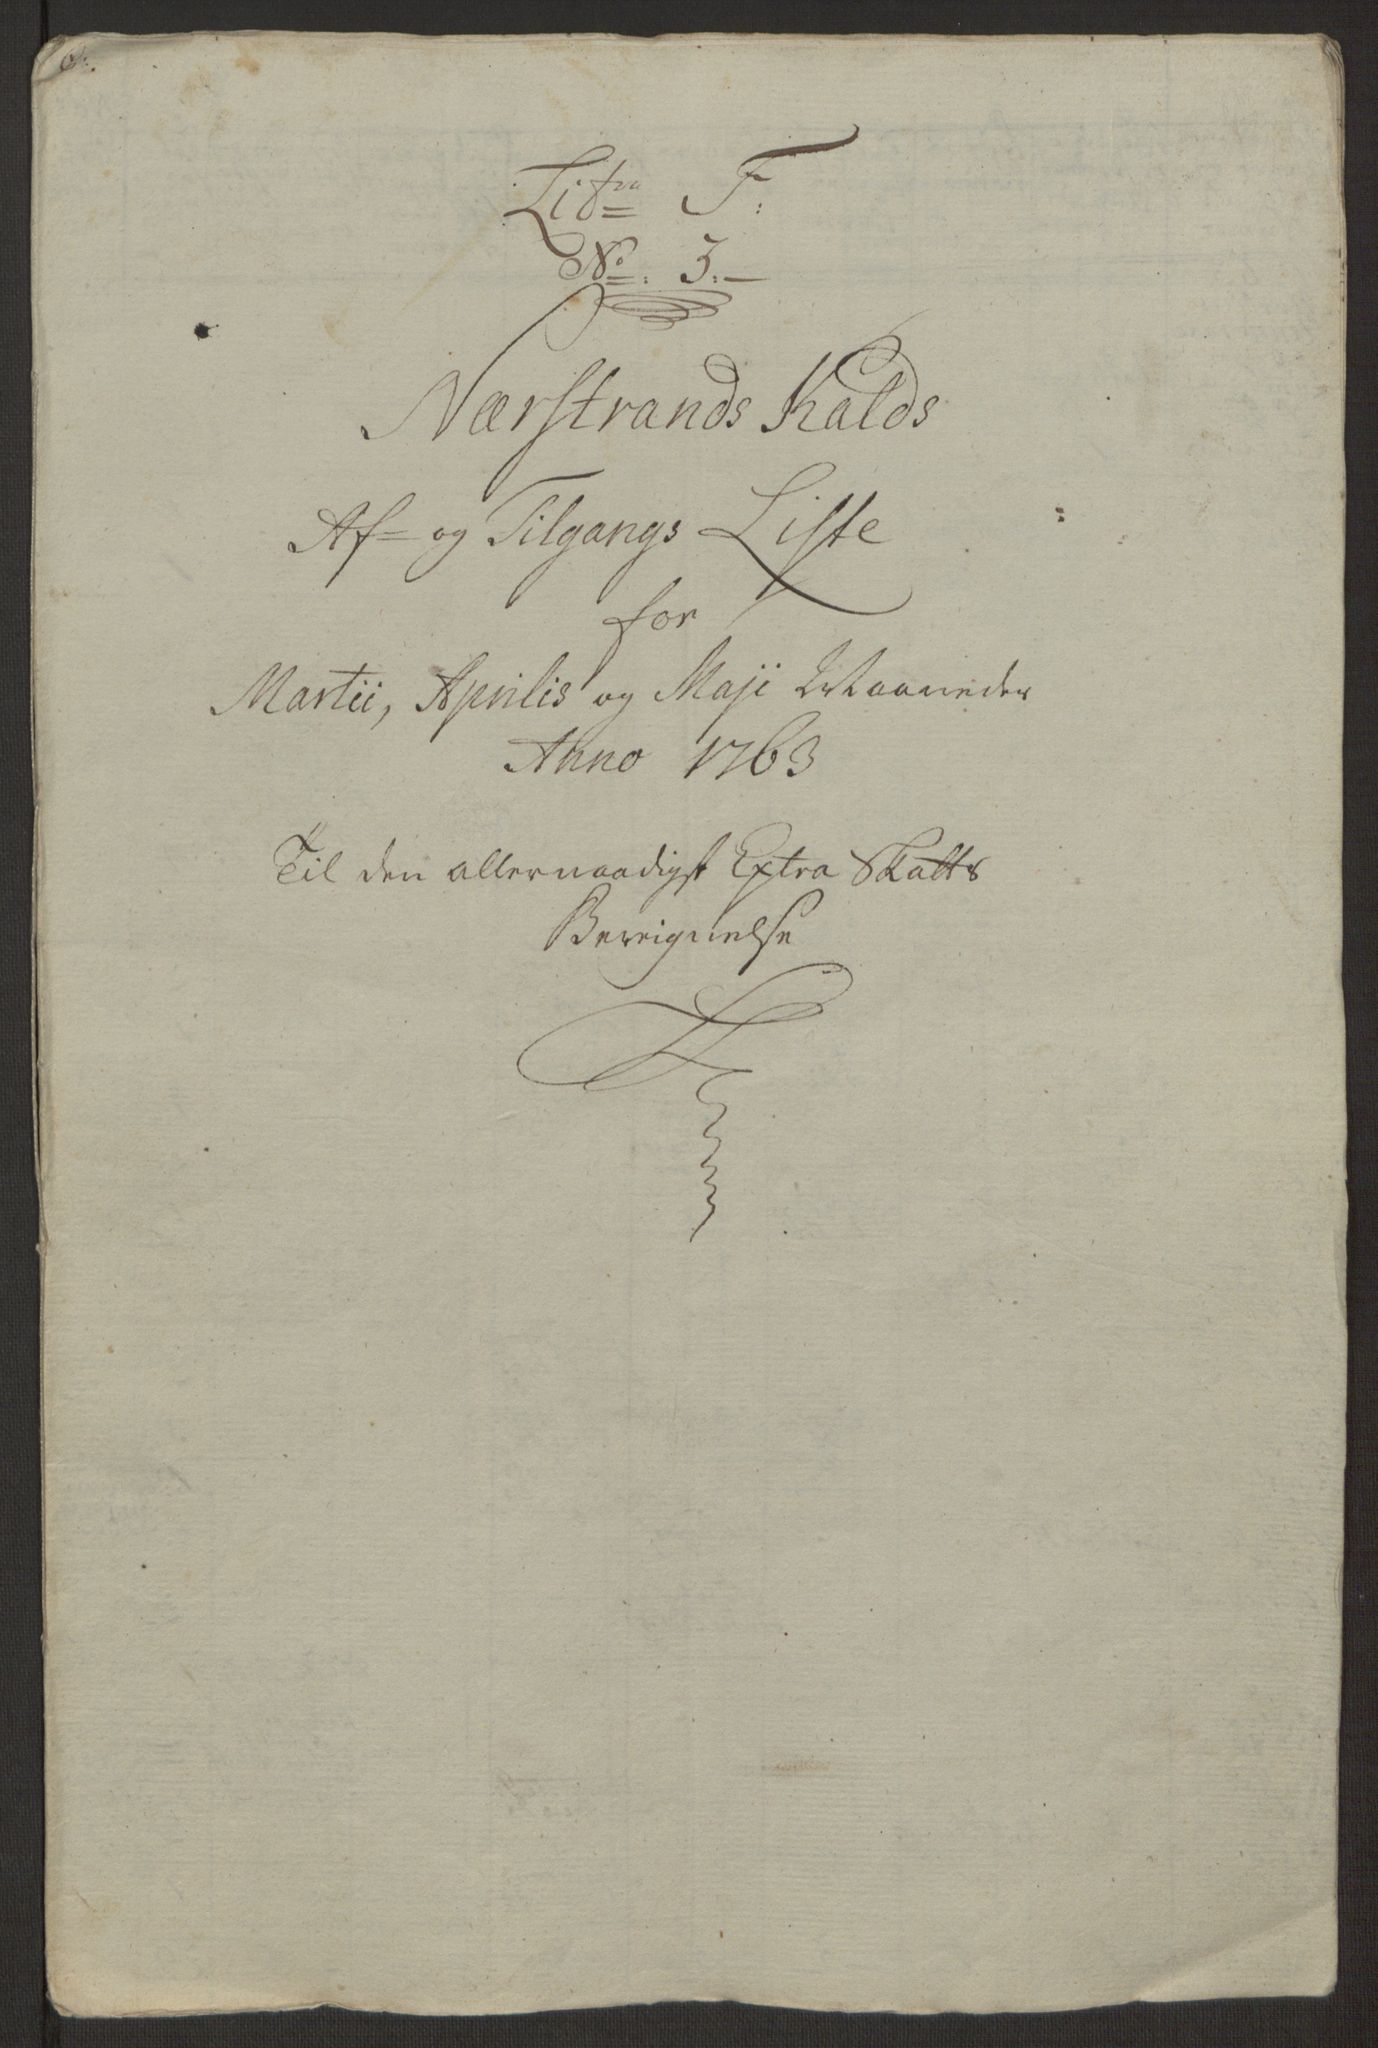 Litra F:
No: 3.
Nærstrands Kalds
Af- og Tilgangs Liste
for
Martii, Aprilis og Maji Maaneder
Anno 1763
Til den allernaadigst Extra Skatts
Bereignelse